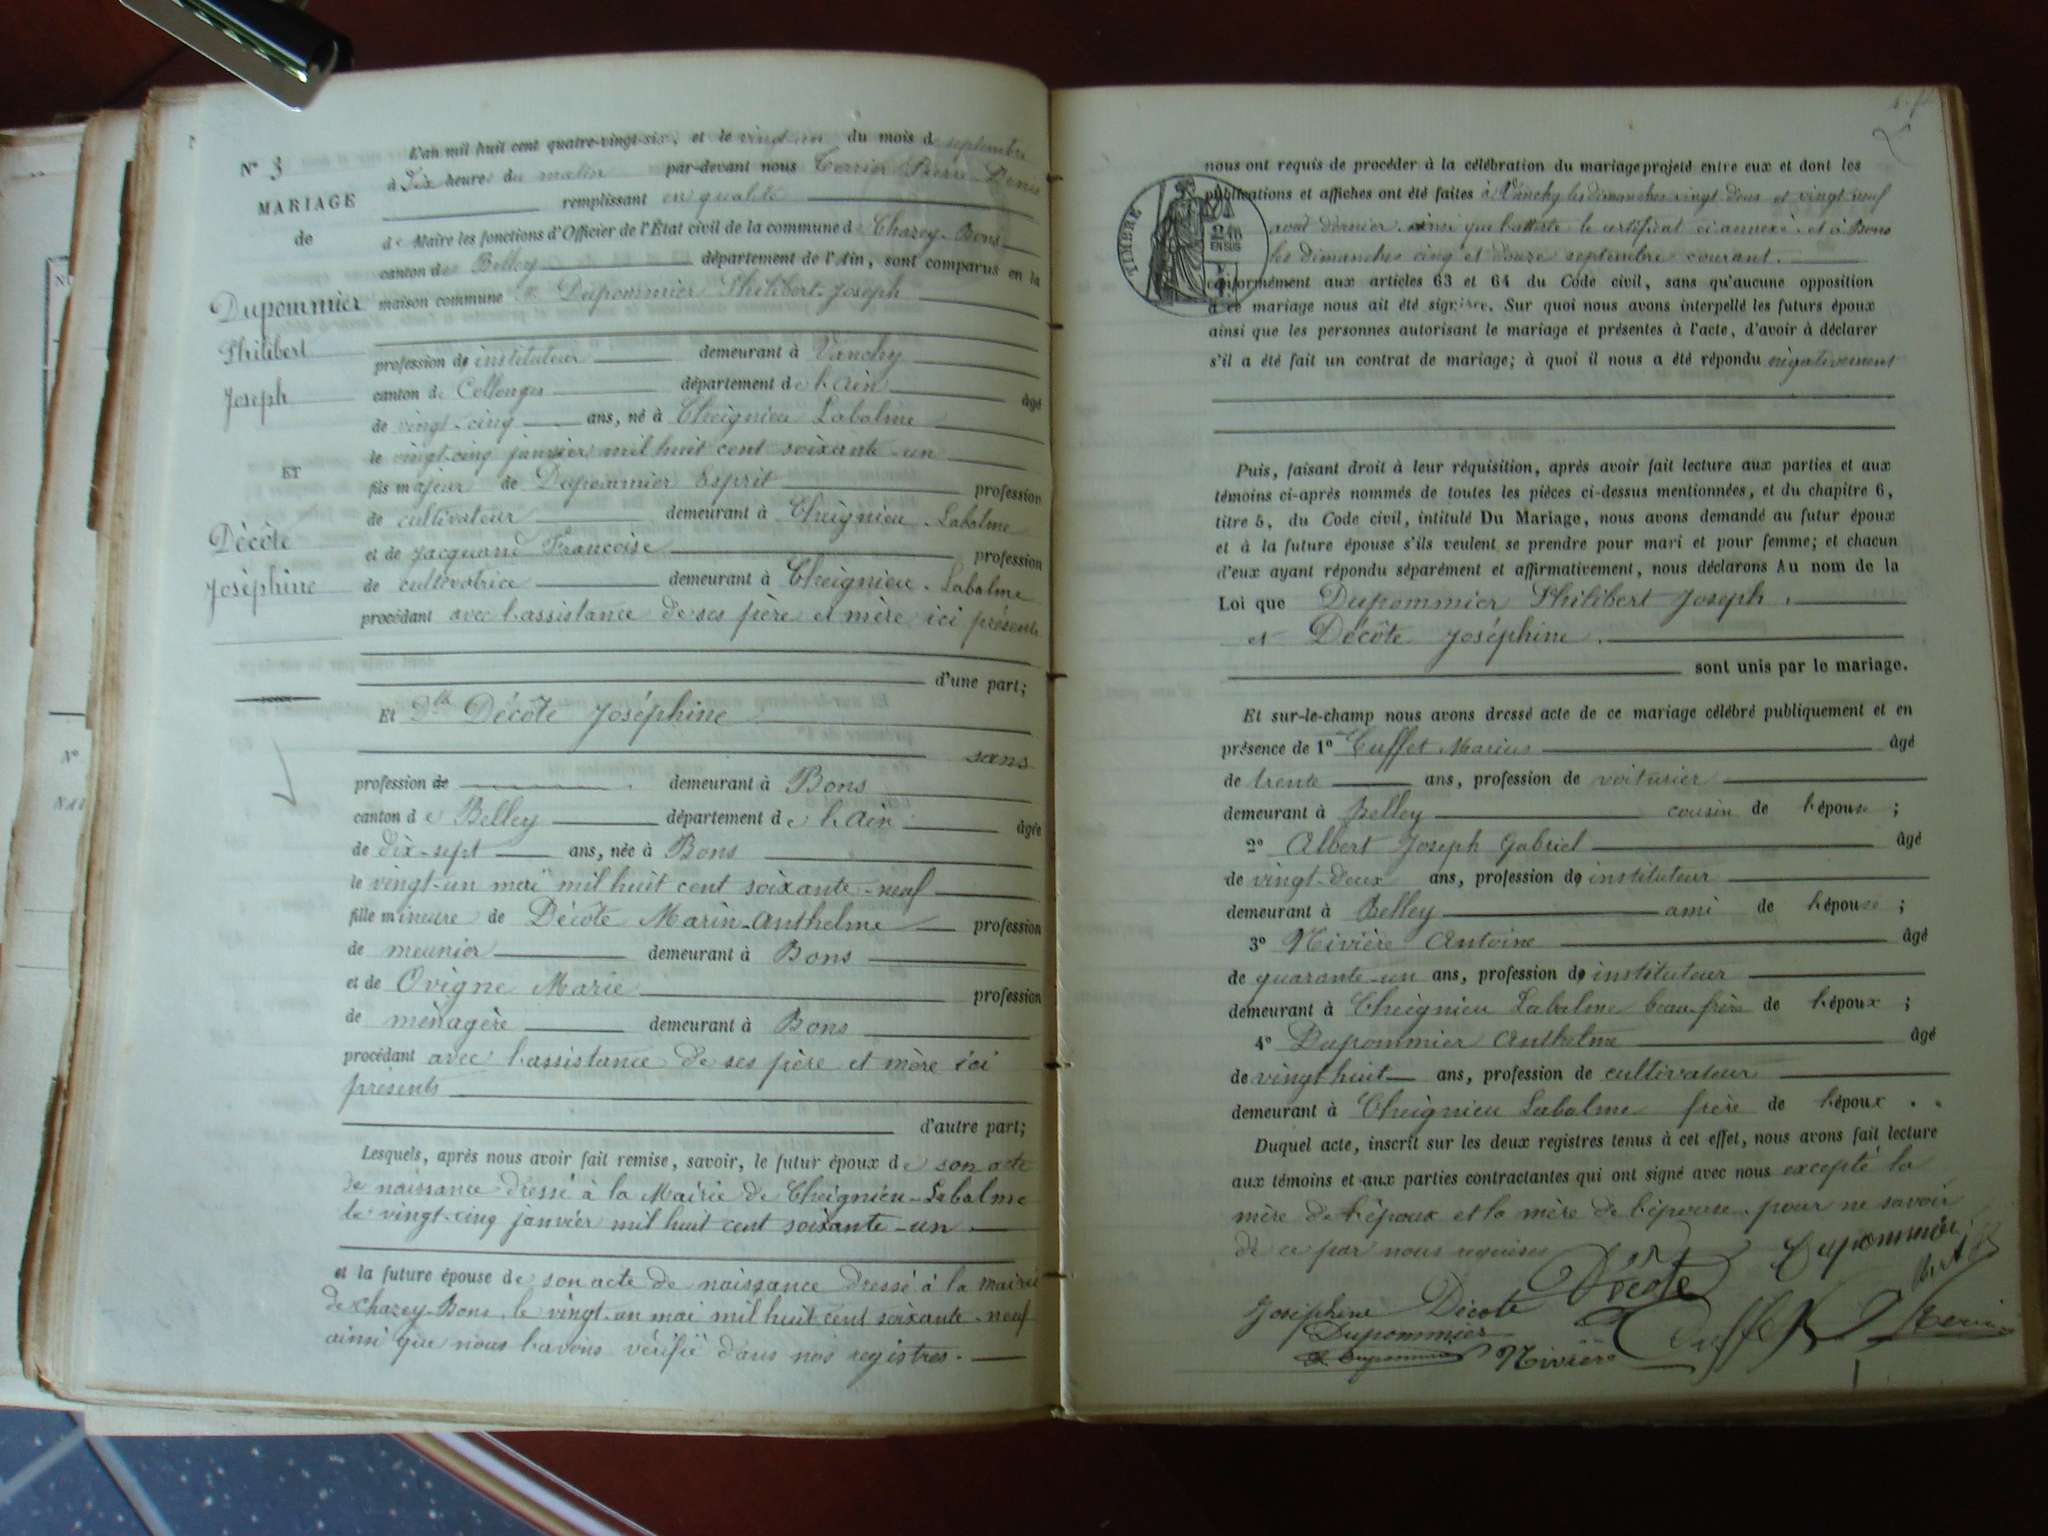 N° 3
MARIAGE
de
Dupommier
Philibert
Joseph
ET
Décôte
Joséphine
L'an mil huit cent quatre-vingt-six, et le vingt-un du mois de septembre
à dix heures du matin par-devant nous Terrier Pierre-Denis
remplissant en qualité
de Maire les fonctions d'Officier de l'État civil de la commune de Chazey-Bons
canton de Belley département de l'Ain, sont comparus en la
maison commune Mr Dupommier Philibert-Joseph
profession de instituteur demeurant à Vanchy
canton de Collonges département de l'Ain âgé
de vingt-cinq ans, né à Cheignieu Labalme
le vingt-cinq janvier mil huit cent soixante-un
fils majeur de Dupommier Esprit profession
de cultivateur demeurant à Cheignieu-Labalme
et de Jacquand Françoise profession
de cultivatrice demeurant à Cheignieu-Labalme
procédant avec l'assistance de ses père et mère ici présents
d'une part;
Et Dlle Décôte Joséphine
sans
profession de demeurant à Bons
canton de Belley département de l'Ain âgée
de dix-sept ans, née à Bons
le vingt-un mai mil huit cent soixante-neuf
fille mineure de Décôte Marin-Anthelme profession
de meunier demeurant à Bons
et de Ovigne Marie profession
de ménagère demeurant à Bons
procédant avec l'assistance de ses père et mère ici
présents
d'autre part;
Lesquels, après nous avoir fait remise, savoir, le futur époux de son acte
de naissance dressé à la Mairie de Cheignieu-Labalme
le vingt-cinq janvier mil huit cent soixante-un
et la future épouse de son acte de naissance dressé à la mairie
de Chazey-Bons, le vingt-un mai mil huit cent soixante-neuf
ainsi que nous l'avons vérifié dans nos registres.
nous ont requis de procéder à la célébration du mariage projeté entre eux et dont les
publications et affiches ont été faites à Vanchy les dimanches vingt-deux et vingt neuf
août dernier ainsi que l'atteste le certificat ci annexé et à Bons
les dimanches cinq et douze septembre courant.
TIMBRE
2/10
EN SUS
conformément aux articles 63 et 64 du Code civil, sans qu'aucune opposition
à ce mariage nous ait été signifiée. Sur quoi nous avons interpellé les futurs époux
ainsi que les personnes autorisant le mariage et présentes à l'acte, d'avoir à déclarer
s'il a été fait un contrat de mariage; à quoi il nous a été répondu négativement
Puis, faisant droit à leur réquisition, après avoir fait lecture aux parties et aux
témoins ci-après nommés de toutes les pièces ci-dessus mentionnées, et du chapitre 6,
titre 5, du Code civil, intitulé Du Mariage, nous avons demandé au futur époux
et à la future épouse s'ils veulent se prendre pour mari et pour femme; et chacun
d'eux ayant répondu séparément et affirmativement, nous déclarons Au nom de la
Loi que Dupommier Philibert Joseph.
et Décôte Joséphine.
sont unis par le mariage.
Et sur-le-champ nous avons dressé acte de ce mariage célébré publiquement et en
présence de 1° Cuffet Marius âgé
de trente ans, profession de voiturier
demeurant à Belley cousin de l'épouse;
2° Albert Joseph Gabriel âgé
de vingt-deux ans, profession de instituteur
demeurant à Belley ami de l'épouse;
3° Nivière Antoine âgé
de quarante-un ans, profession de instituteur
demeurant à Cheignieu Labalme beau-frère de l'époux;
4° Dupommier Anthelme âgé
de vingt huit ans, profession de cultivateur
demeurant à Cheignieu Labalme frère de l'époux.
Duquel acte, inscrit sur les deux registres tenus à cet effet, nous avons fait lecture
aux témoins et aux parties contractantes qui ont signé avec nous excepté la
mère de l'époux et la mère de l'épouse, pour ne savoir
de ce par nous requises
Décôte Dupommier
Joséphine Décôte
Albert
Dupommier
Dupommier Nivière Cuffet